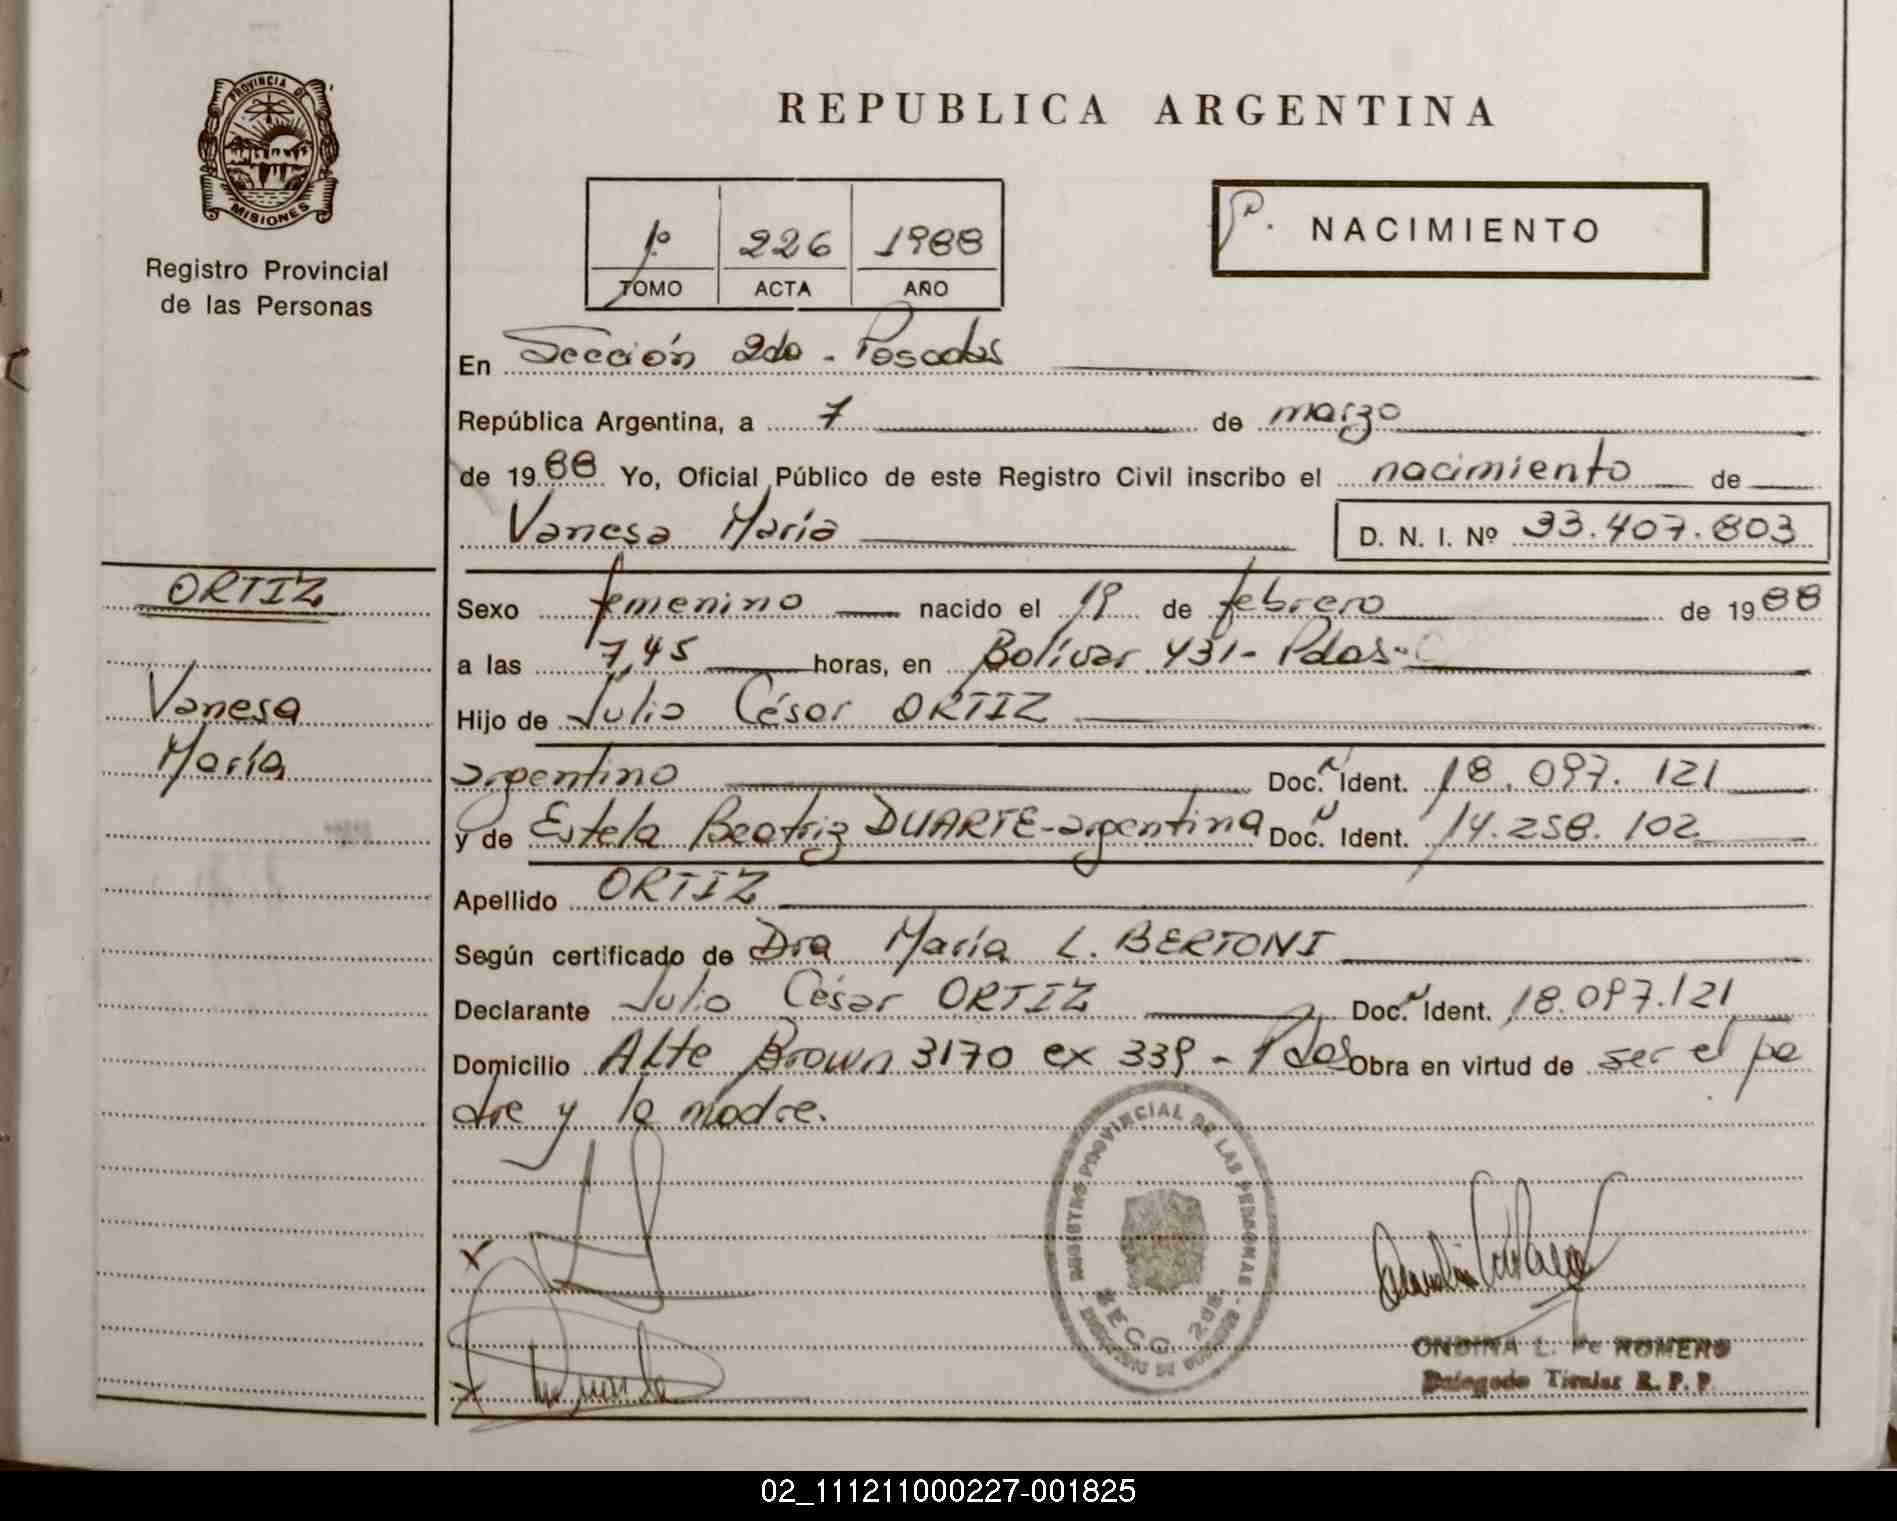 PROVINCIA DE
MISIONES
Registro Provincial
de las Personas
REPUBLICA ARGENTINA
1º 226 1988
TOMO ACTA AÑO
NACIMIENTO
En Sección 2da - Posadas
República Argentina, a 7 de marzo
de 1988 Yo, Oficial Público de este Registro Civil inscribo el nacimiento de
Vanesa María D. N. I. Nº 33.407.803
ORTIZ
Vanesa
María
Sexo femenino nacido el 19 de febrero de 1988
a las 7,45 horas, en Bolívar 431- Pdas-
Hijo de Julio César ORTIZ
argentino Doc. Ident. 18.097.121
y de Estela Beatriz DUARTE-argentina Doc. Ident. 14.258.102
Apellido ORTIZ
Según certificado de Dra María L. BERTONI
Declarante Julio César ORTIZ Doc. Ident. 18.097.121
Domicilio Alte Brown 3170 ex 339 - Pdas Obra en virtud de ser el pa
dre y la madre.
REGISTRO PROVINCIAL DE LAS PERSONAS
SECC. 2da.
ONDINA L. ROMERO
Delegado Titular R. P. P.
02_111211000227-001825